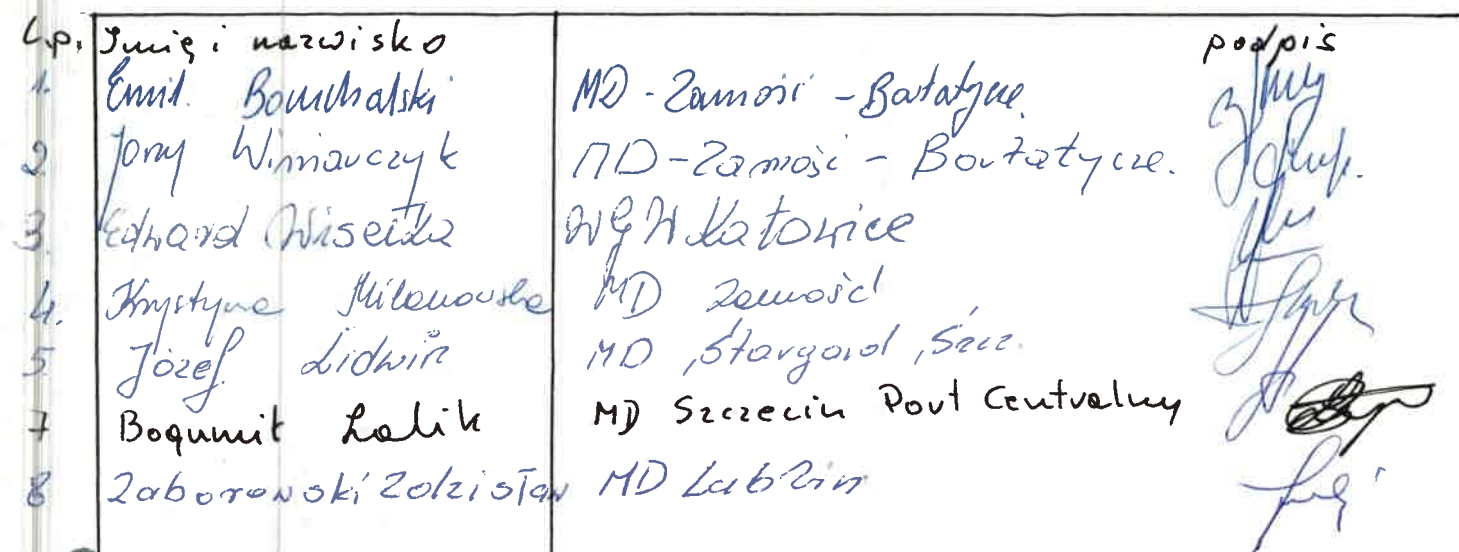 L.p. Imię i nazwisko podpis
1. Emil Bomchalski MD - Zamość - Bortatycze
2. Jerzy Winiarczyk MD - Zamość - Bortatycze.
3. Edward Wisełka Katowice
4. Krystyna Milanowska MD Zamość
5 Józef Lidwin MD Stargard Szcz.
7 Bogumił Lalik MD Szczecin Port Centralny
8 Zaborowski Zdzisław MD Lublin